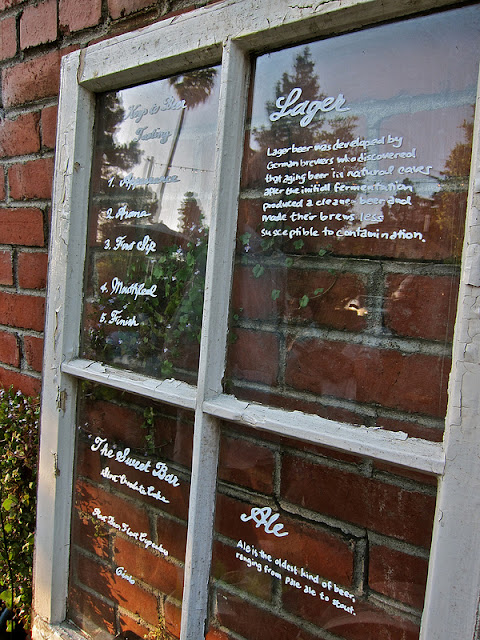 Keys to Beer
Tasting
1. Appearance
2. Aroma
3. First Sip
4. Mouthfeel
5. Finish
Lager
Lager beer was developed by
German brewers who discovered
that aging beer in natural caves
after the initial fermentation
produced a cleaner beer and
made their brews less
susceptible to contamination.
The Sweet Bar
Cake
Cupcakes
Ale
Ale is the oldest kind of beer,
ranging from pale ale to stout.